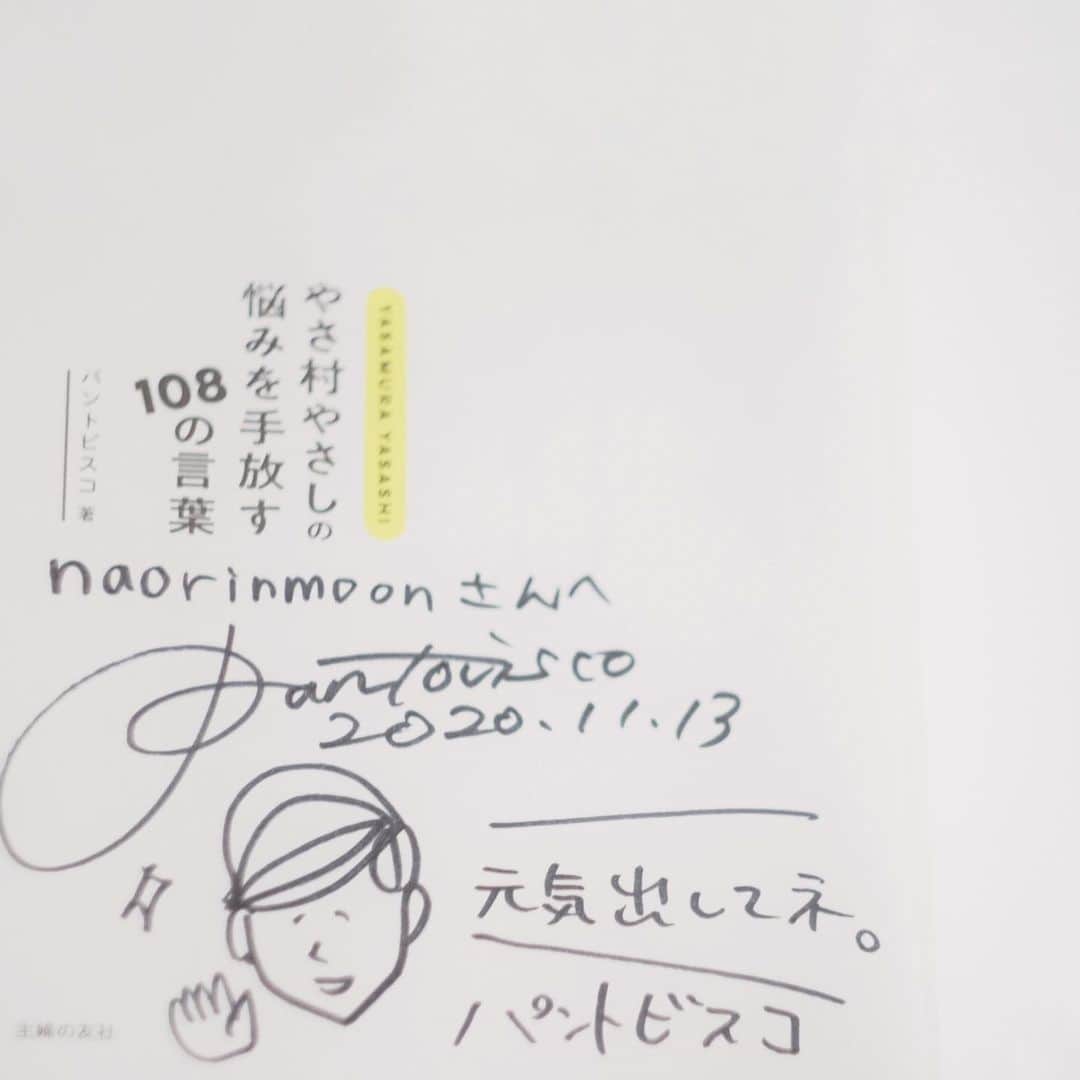 YASAMURA YASASHI
やさ村やさしの
悩みを手放す
108の言葉
パントビスコ 著
naorinmoonさんへ
Pantovisco
2020.11.13
元気出してネ。
パントビスコ
主婦の友社